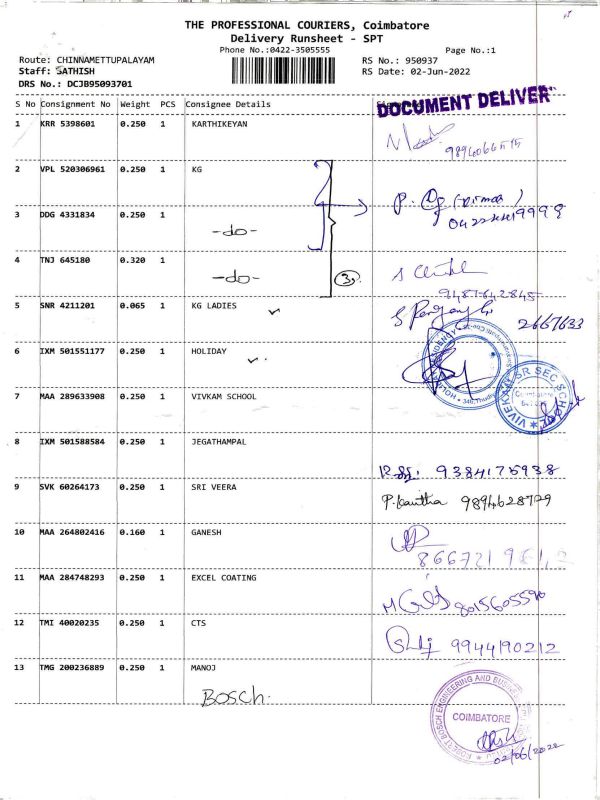 THE PROFESSIONAL COURIERS, Coimbatore
Delivery Runsheet - SPT
Phone No.:0422-3505555
Page No.:1
Route: CHINNAMETTUPALAYAM
RS No.: 950937
Staff: SATHISH
RS Date: 02-Jun-2022
DRS No.: DCJB95093701
S No Consignment No Weight PCS Consignee Details
DOCUMENT DELIVER
1 KRR 5398601 0.250 1 KARTHIKEYAN
2 VPL 520306961 0.250 1 KG
3 DDG 4331834 0.250 1
-do-
4 TNJ 645180 0.320 1
-do- 3
5 SNR 4211201 0.065 1 KG LADIES
2667633
6 IXM 501551177 0.250 1 HOLIDAY
7 MAA 289633908 0.250 1 VIVKAM SCHOOL
8 IXM 501588584 0.250 1 JEGATHAMPAL
9384175938
9 SVK 60264173 0.250 1 SRI VEERA
P. Kavitha 9894628729
10 MAA 264802416 0.160 1 GANESH
11 MAA 284748293 0.250 1 EXCEL COATING
8015605590
12 TMI 40020235 0.250 1 CTS
9944190212
13 TMG 200236889 0.250 1 MANOJ
BOSCH.
COIMBATORE
02/06/2022